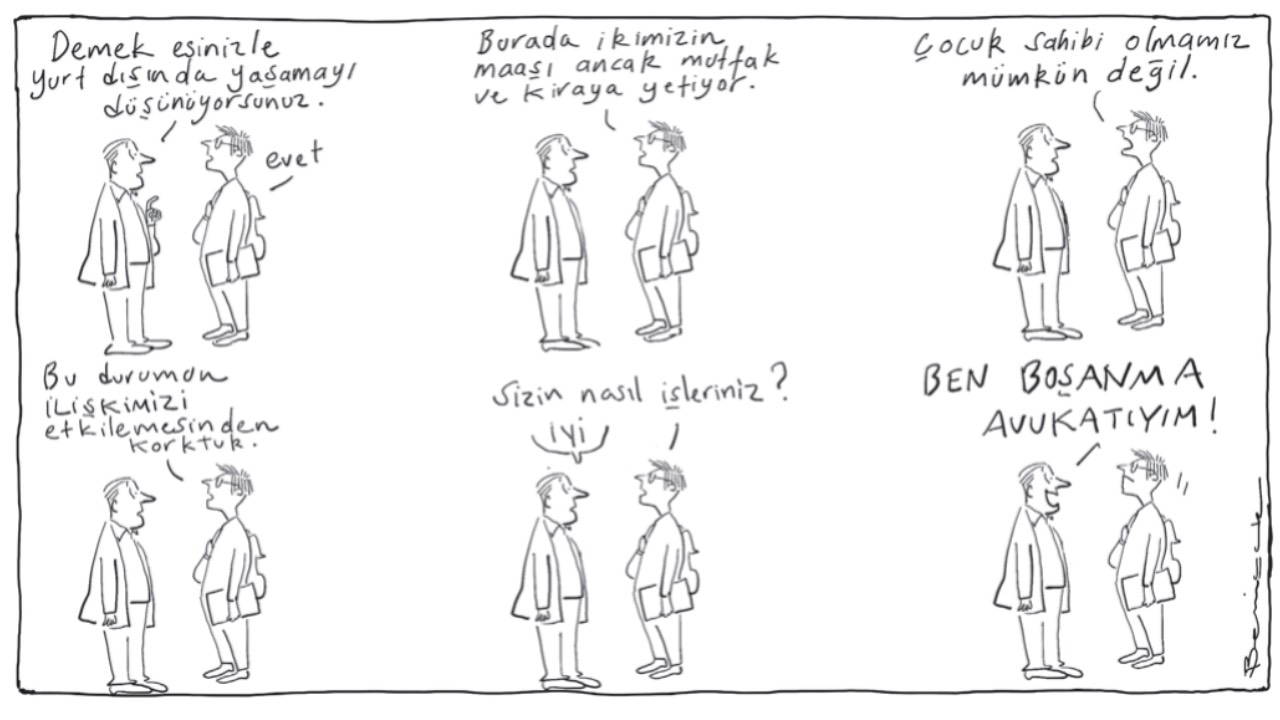 Demek eşinizle
yurt dışında yaşamayı
düşünüyorsunuz.
evet
Burada ikimizin
maaşı ancak mutfak
ve kiraya yetiyor.
Çocuk sahibi olmamız
mümkün değil.
Bu durumun
ilişkimizi
etkilemesinden
korktuk.
Sizin nasıl işleriniz?
iyi
BEN BOŞANMA
AVUKATIYIM!